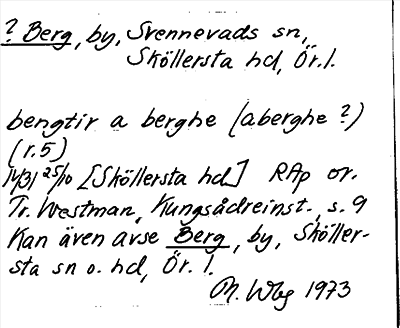 ? Berg, by, Svennevads sn,
Sköllersta hd, Ör. l.
bengtir a berghe (aberghe ?)
(r. 5)
1431 25/10 [Sköllersta hd] RAp or.
Tr. Westman, Kungsådreinst., s. 9
Kan även avse Berg, by, Sköller-
sta sn o. hd, Ör. l.
M. Wbg 1973